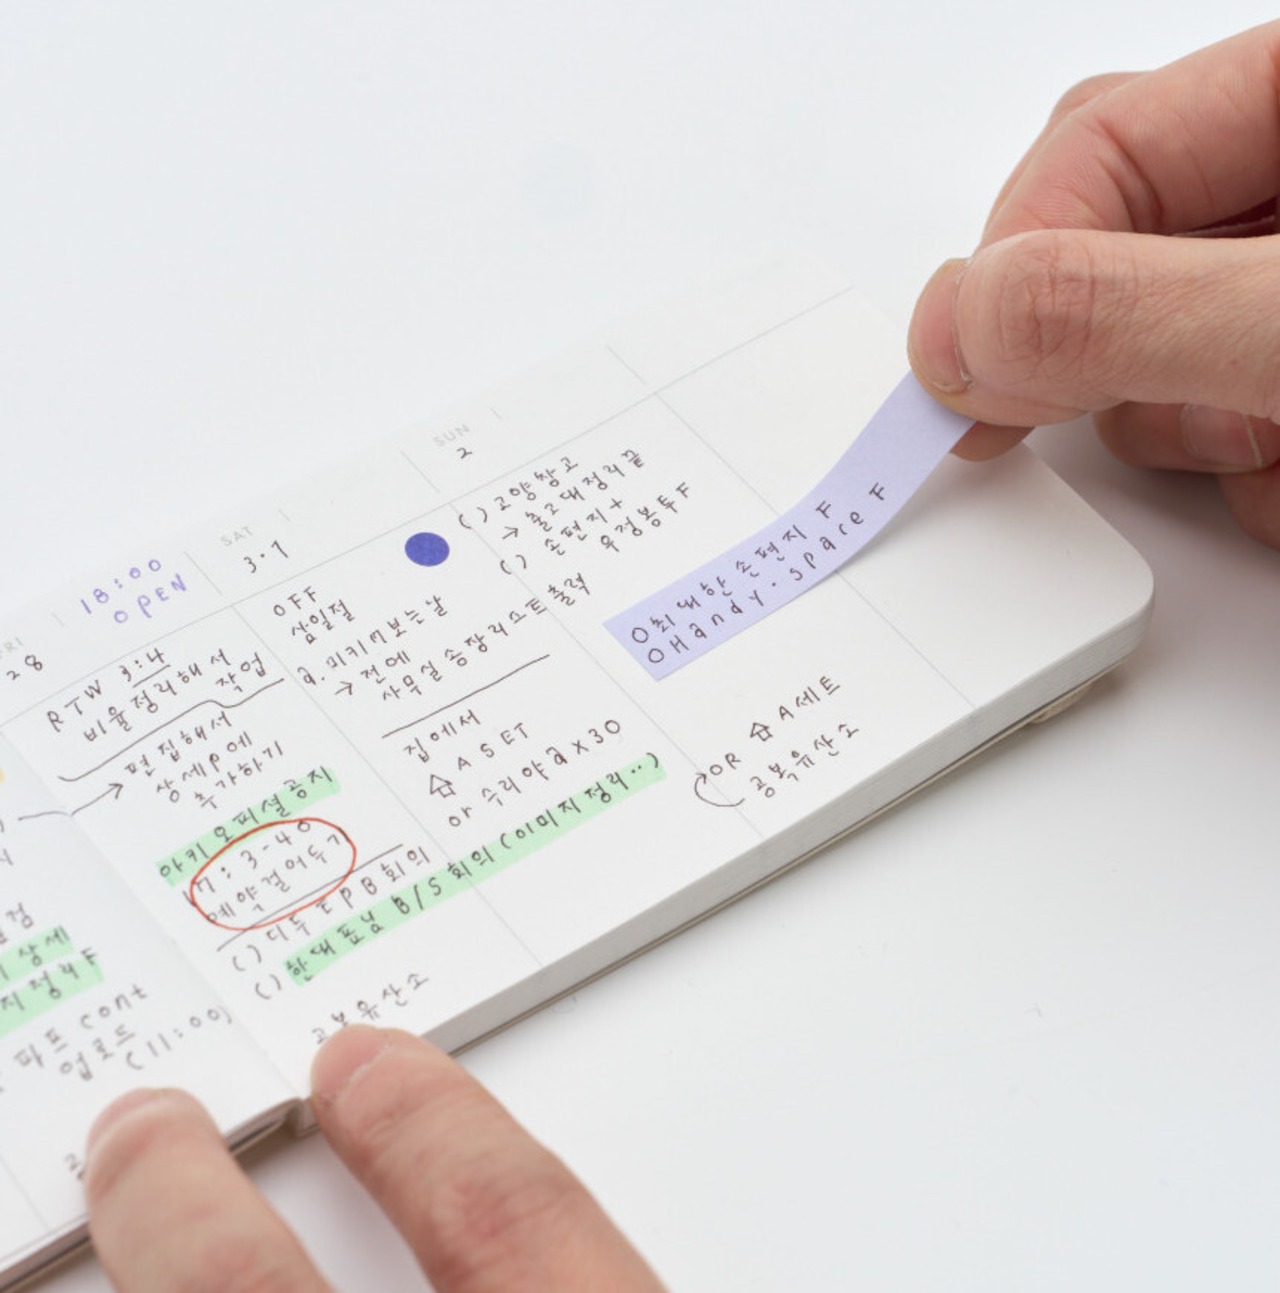 FRI
28
18:00
OPEN
RTW 3:4
비율정리해서
작업
편집해서
상세P에
추가하기
아키 오피셜공지
17:3-40
예약걸어두기
( ) 디두 EPB회의
( ) 한대표님 B/S 회의 (이미지정리..)
공복유산소
상세
지정리F
파프 cont
업로드
(11:00)
SAT
3.1
OFF
삼일절
a. 미키17보는날
→ 전에
사무실 송장리스트 출력
집에서
ASET
야 수리야 a x 30
SUN
2
( ) 고양창고
→ 출고대정리끝
( ) 손편지+
우정봉투F
O최대한손편지 F
OHandy.space F
OR A세트
공복유산소